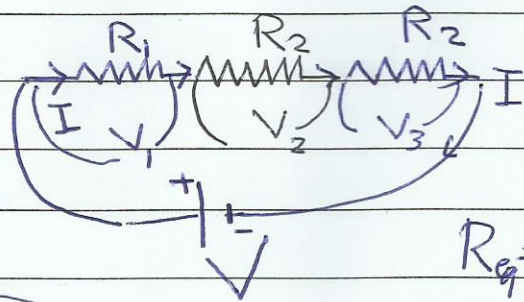 R₁ R₂ R₂
I V₁ V₂ V₃ I
+ -
V
Req=